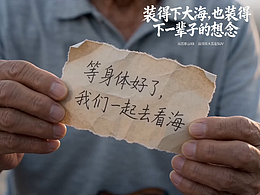 装得下大海,也装得
下一辈子的想念
等身体好了,
我们一起去看海